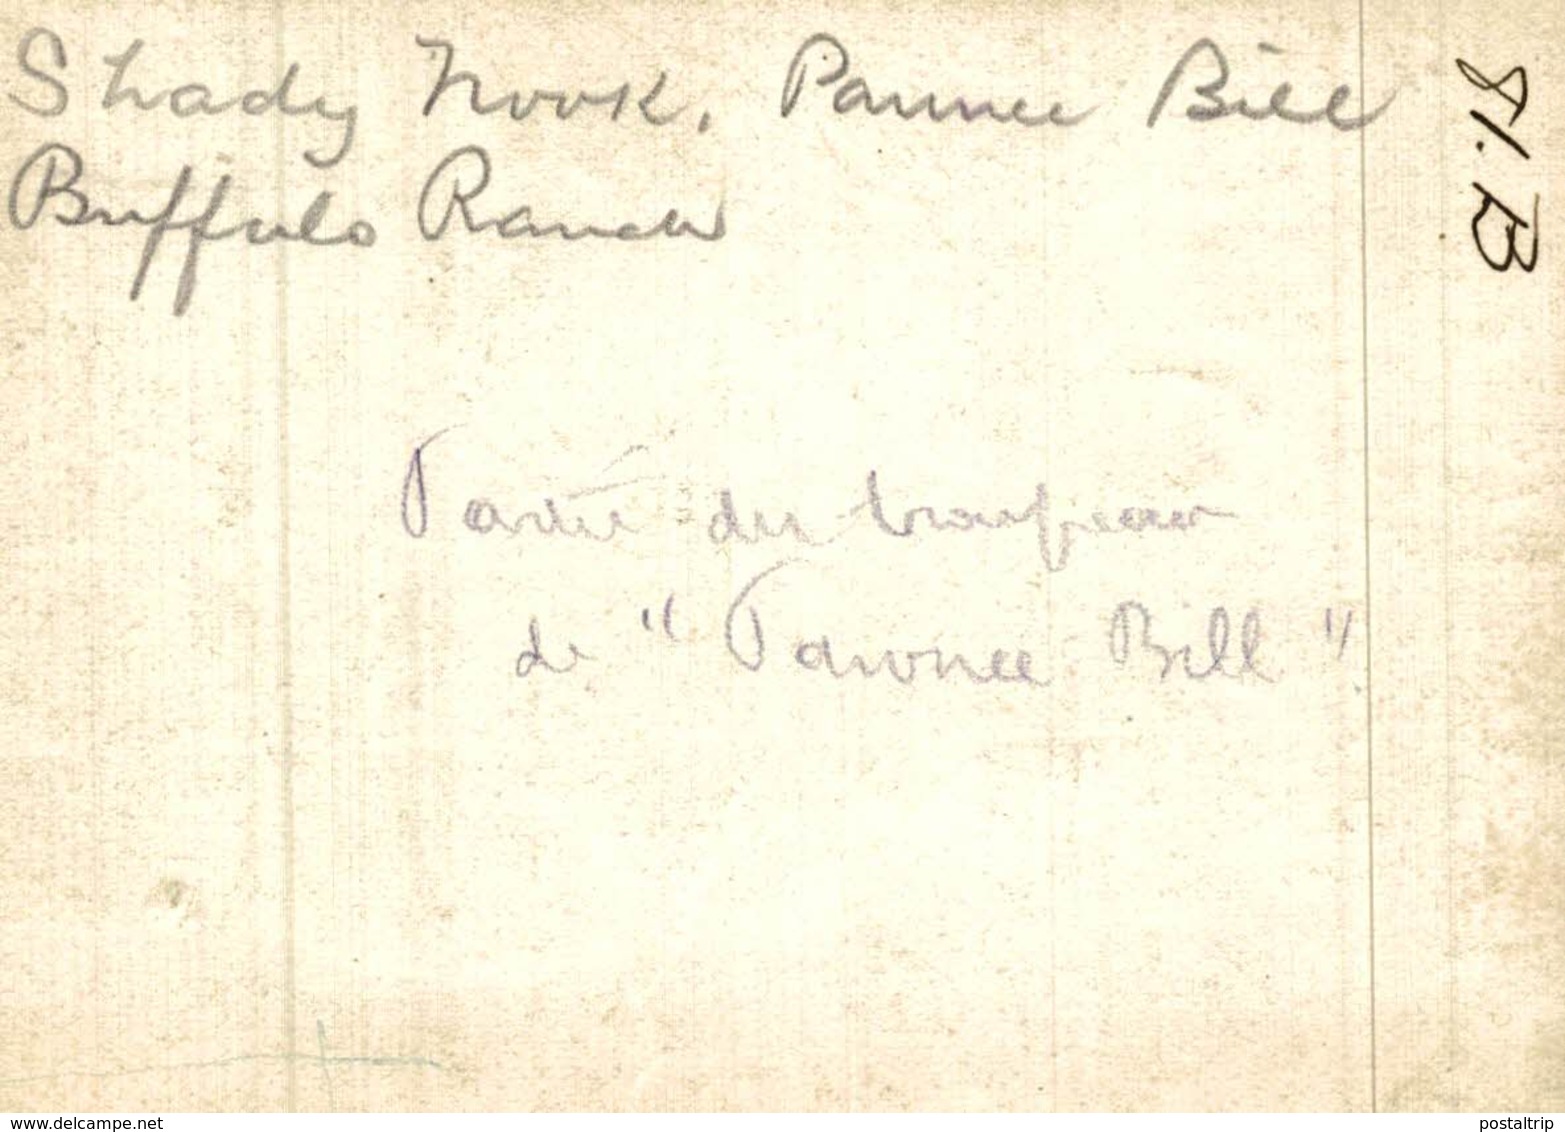 Shady Nook. Pawnee Bill
Buffulo Ranch
81. B
Partie du troupeau
de "Pawnee Bill"
delcampe.net
postaltrip